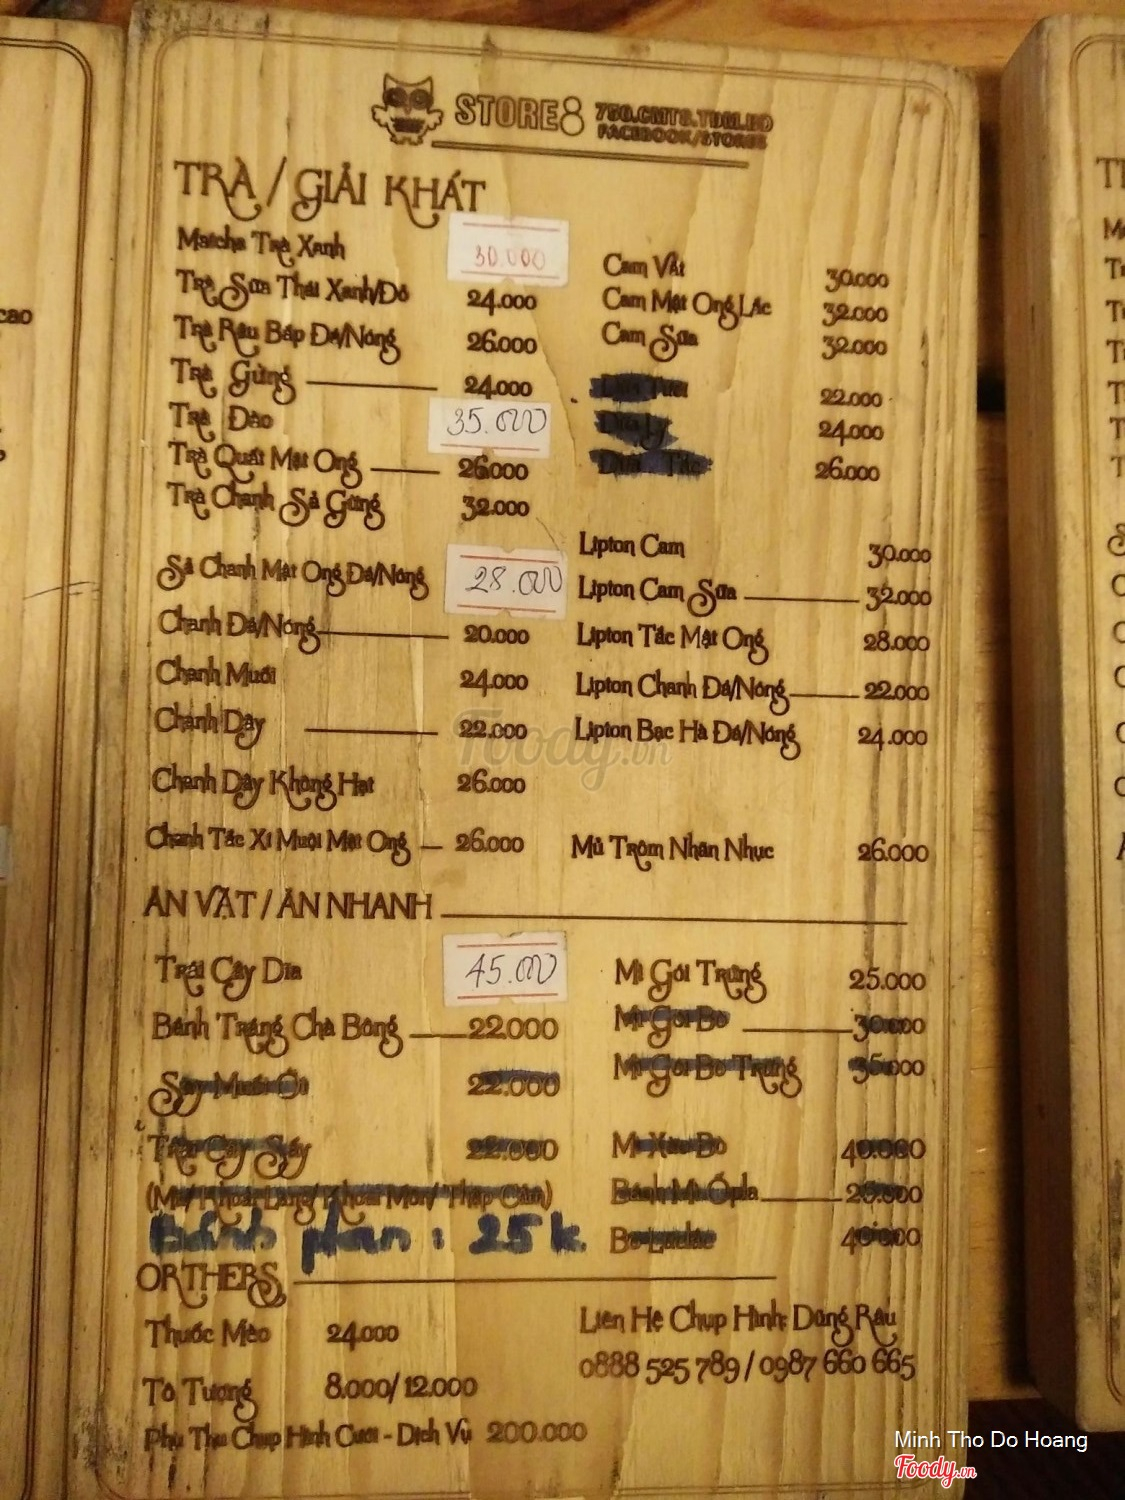 STORE8 750.CMT8.TDM.BD
FACEBOOK/STORE8
TRÀ / GIẢI KHÁT
Matcha Trà Xanh 30.000
Trà Sữa Thái Xanh/Đỏ 24.000
Trà Râu Bắp Đá/Nóng 26.000
Trà Gừng 24.000
Trà Đào 35.000
Trà Quất Mật Ong 26.000
Trà Chanh Sả Gừng 32.000
Sả Chanh Mật Ong Đá/Nóng 28.000
Chanh Đá/Nóng 20.000
Chanh Muối 24.000
Chanh Dây 22.000
Chanh Dây Không Hạt 26.000
Chanh Tắc Xí Muội Mật Ong 26.000
Cam Vắt 30.000
Cam Mật Ong Lắc 32.000
Cam Sữa 32.000
22.000
24.000
26.000
Lipton Cam 30.000
Lipton Cam Sữa 32.000
Lipton Tắc Mật Ong 28.000
Lipton Chanh Đá/Nóng 22.000
Lipton Bạc Hà Đá/Nóng 24.000
Mủ Trôm Nhãn Nhục 26.000
ĂN VẶT / ĂN NHANH
Trái Cây Dĩa 45.000
Bánh Tráng Chà Bông 22.000
22.000
Trái Cây Sấy 22.000
(Mít/ Khoai Lang/ Khoai Môn/ Thập Cẩm)
Bánh plan : 25k
Mì Gói Trứng 25.000
Mì Gói Bò 30.000
Mì Gói Bò Trứng 35.000
Mì Xào Bò 40.000
Bánh Mì Ốpla
Bò Lúclắc 40.000
ORTHERS
Thuốc Mèo 24.000
Tô Tượng 8.000/ 12.000
Phụ Thu Chụp Hình Cưới - Dịch Vụ 200.000
Liên Hệ Chụp Hình: Dũng Râu
0888 525 789 / 0987 660 665
Foody.vn
Minh Tho Do Hoang
Foody.vn